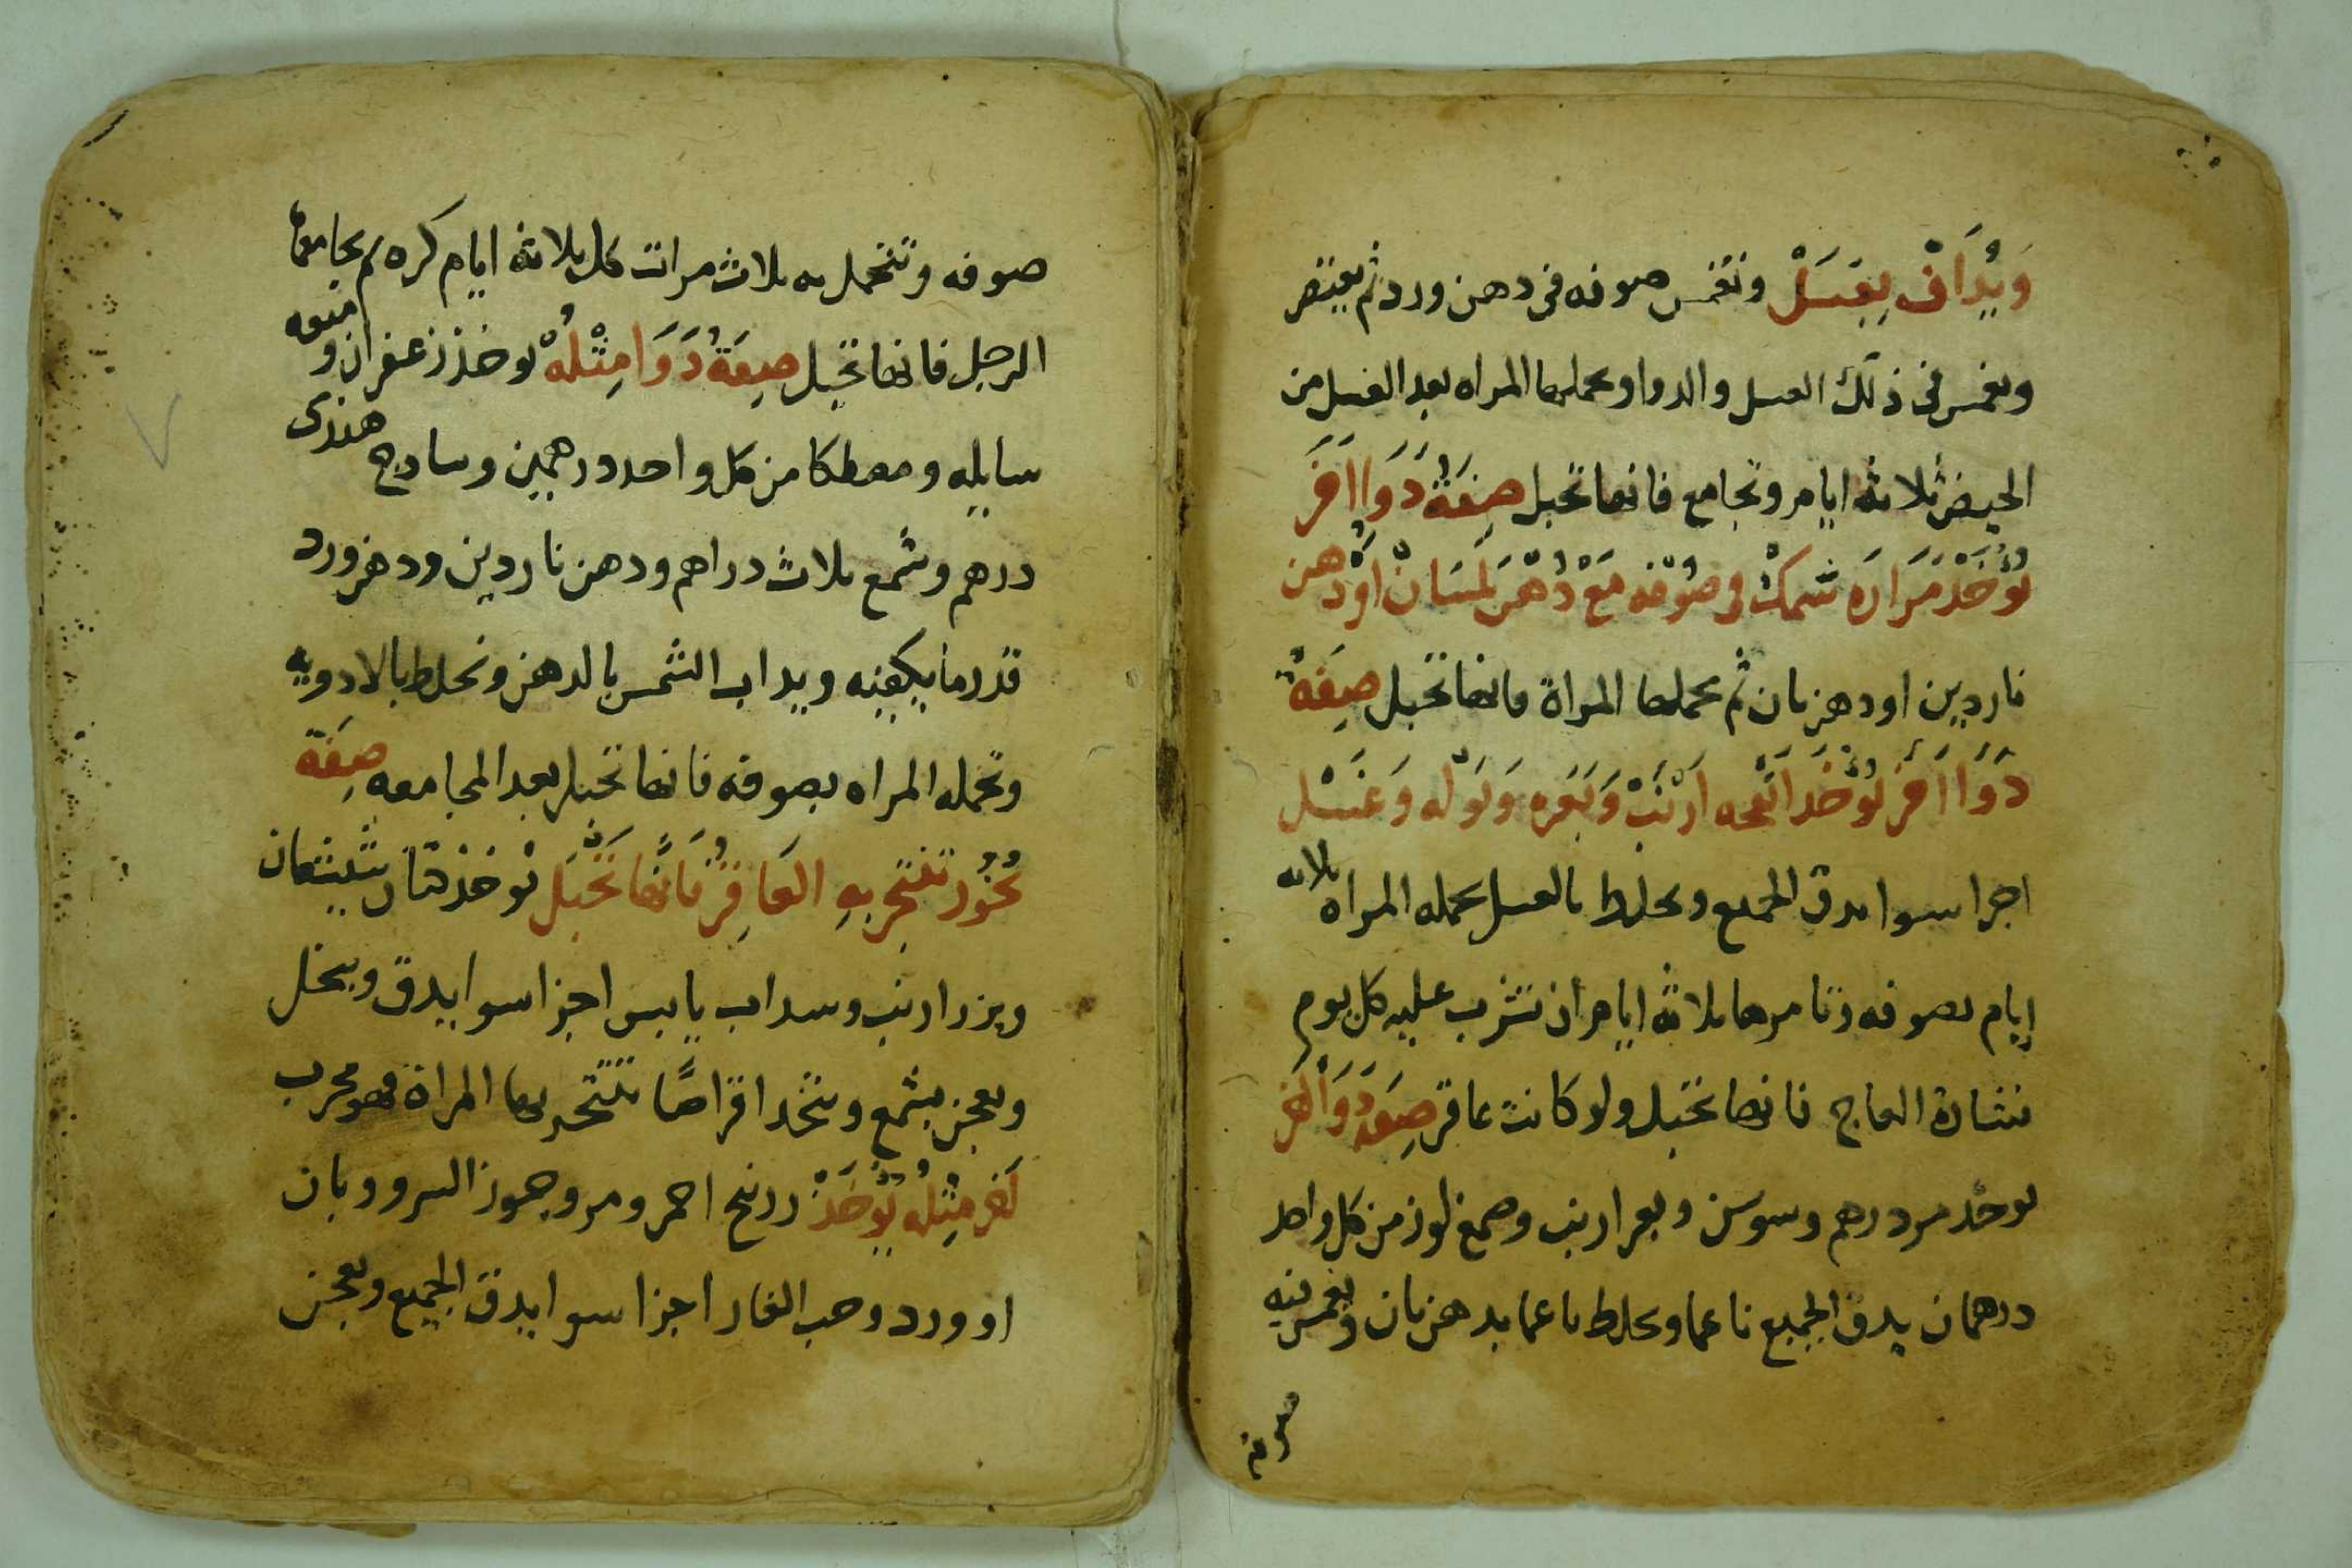 وَيُدَافْ بِعَسَلْ وتغمس صوفه فى دهن ورد ثم يعتصر
وبغمس فى ذلك العسل والدوا وبحملها المراه بعد الغسل من
الحيض ثلاثه ايام وتجامع فانها تحبل صِفَةُ دَوَا اَخَرَ
تُوْخَذْ مَرَارَه سَمَكْ فى صُوْفه مَعْ دُهْن بَلَسَانْ اوْ دهن
ناردين او دهن بان ثم بحملها المراة فانها تحبل صِفَةُ
دَوَا اَخَرْ يُوْخَذ انْفحه ارْنَبْ وَبَعَره وَبَوْله وَعَسَل
اجزا سوا يدق الجميع ويخلط بالعسل بحمله المراه ثلاثه
ايام بصوفه وتامرها ثلاثه ايام ان تشرب عليه كل يوم
نشارة العاج فانها تحبل ولو كانت عاقر صِفَه دَوَا اَخَر
يوخذ مر درهم وسوسن وبعر ارنب وصمغ لوز من كل واحد
درهمان يدق الجميع ناعما ويخلط ناعما بدهن بان ويغمس فيه
صوفه
صوفه وتتحمل به ثلاث مرات كل ثلاثه ايام كره ثم يجامعها
الرجل فانها تحبل صِفَةُ دَوَا مِثْلُهْ يوخذ زعفران وميعه
سايله ومصطكا من كل واحد درهمين وسادج هندى
درهم وشمع ثلاث دراهم ودهن ناردين ودهن ورد
قدر ما يكفيه ويداب الشمع بالدهن وتخلط بالادويه
وتحمله المراه بصوفه فانها تحبل بعد المجامعه صِفَة
بُخُور تتبخر بهِ العَاقِرُ فَانَّها تَحْبَل يوخذ
وبزر ارنب وسداب يابس اجزا سوا يدق وينخل
ويعجن بشمع ويتخد اقراصًا تتبخر بها المراة فهو مجرب
اَخر مِثْلُه يُوْخَذْ زرنيخ احمر ومر وجوز السرو وبان
او ورد وحب الغار اجزا سوا يدق الجميع ويعجن